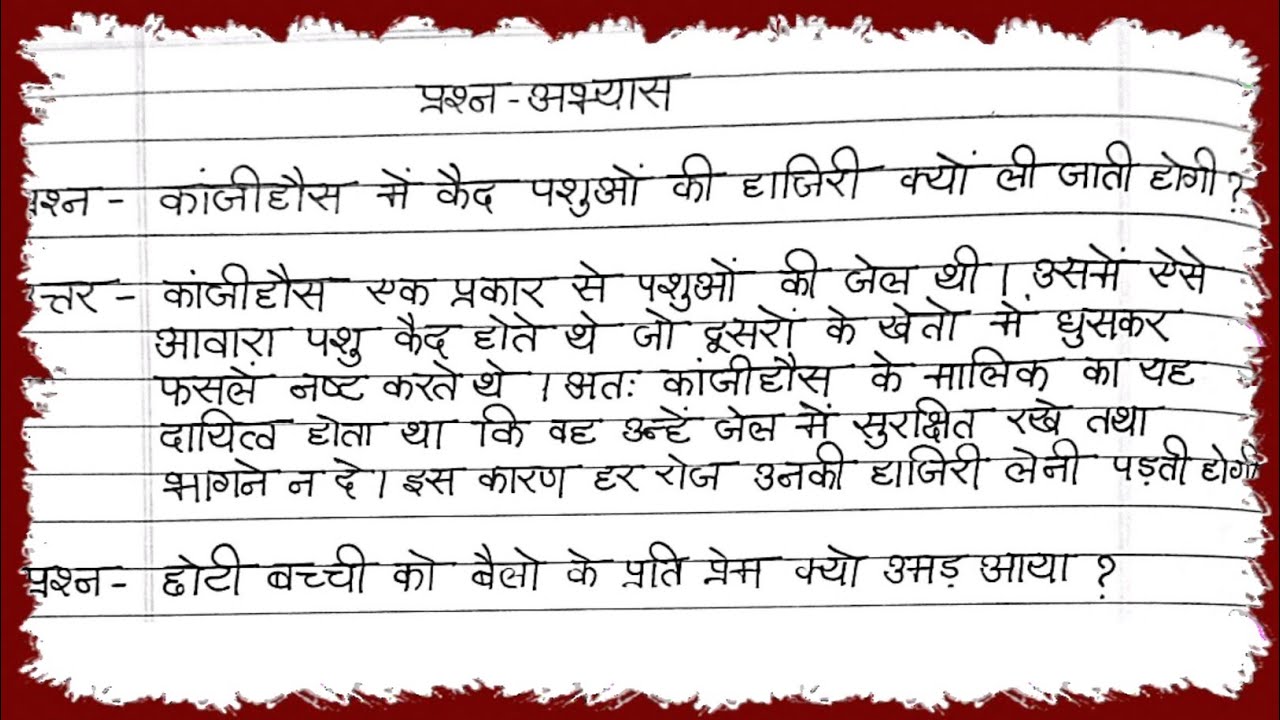 प्रश्न-अभ्यास
प्रश्न - कांजीहौस में कैद पशुओं की हाजिरी क्यों ली जाती होगी?
त्तर - कांजीहौस एक प्रकार से पशुओं की जेल थी। उसमें ऐसे
आवारा पशु कैद होते थे जो दूसरों के खेतो में घुसकर
फसलें नष्ट करते थे। अतः कांजीहौस के मालिक का यह
दायित्व होता था कि वह उन्हें जेल में सुरक्षित रखे तथा
भागने न दे। इस कारण हर रोज उनकी हाजिरी लेनी पड़ती होगी
प्रश्न - छोटी बच्ची को बैलो के प्रति प्रेम क्यो उमड़ आया ?